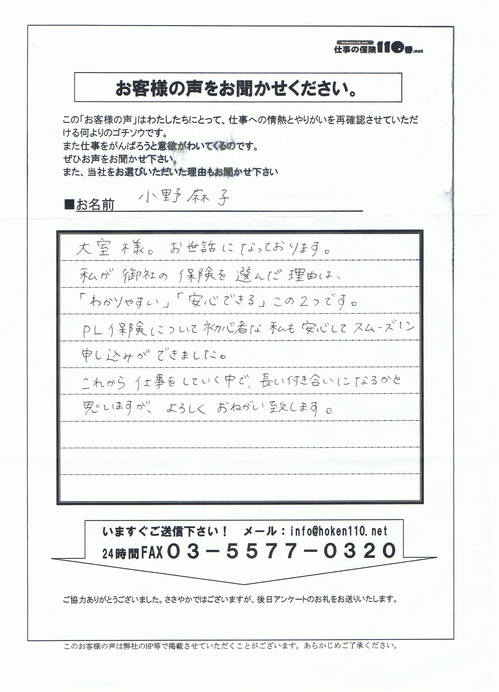 仕事の保険110番.net
お客様の声をお聞かせください。
この「お客様の声」はわたしたちにとって、仕事への情熱とやりがいを再確認させていただ
ける何よりのゴチソウです。
また仕事をがんばろうと意欲がわいてくるのです。
ぜひお声をお聞かせ下さい。
また、当社をお選びいただいた理由もお聞かせ下さい
■お名前 小野麻子
大室様。お世話になっております。
私が御社の保険を選んだ理由は、
「わかりやすい」「安心できる」この2つです。
PL保険について初心者な私も安心してスムーズに
申し込みができました。
これから仕事をしていく中で、長い付き合いになるかと
思いますが、よろしくおねがい致します。
いますぐご送信下さい! メール:info@hoken110.net
24時間FAX03-5577-0320
ご協力ありがとうございました。ささやかではございますが、後日アンケートのお礼をお送りいたします。
このお客様の声は弊社のHP等で掲載させていただくことがございます。あらかじめご了承ください。